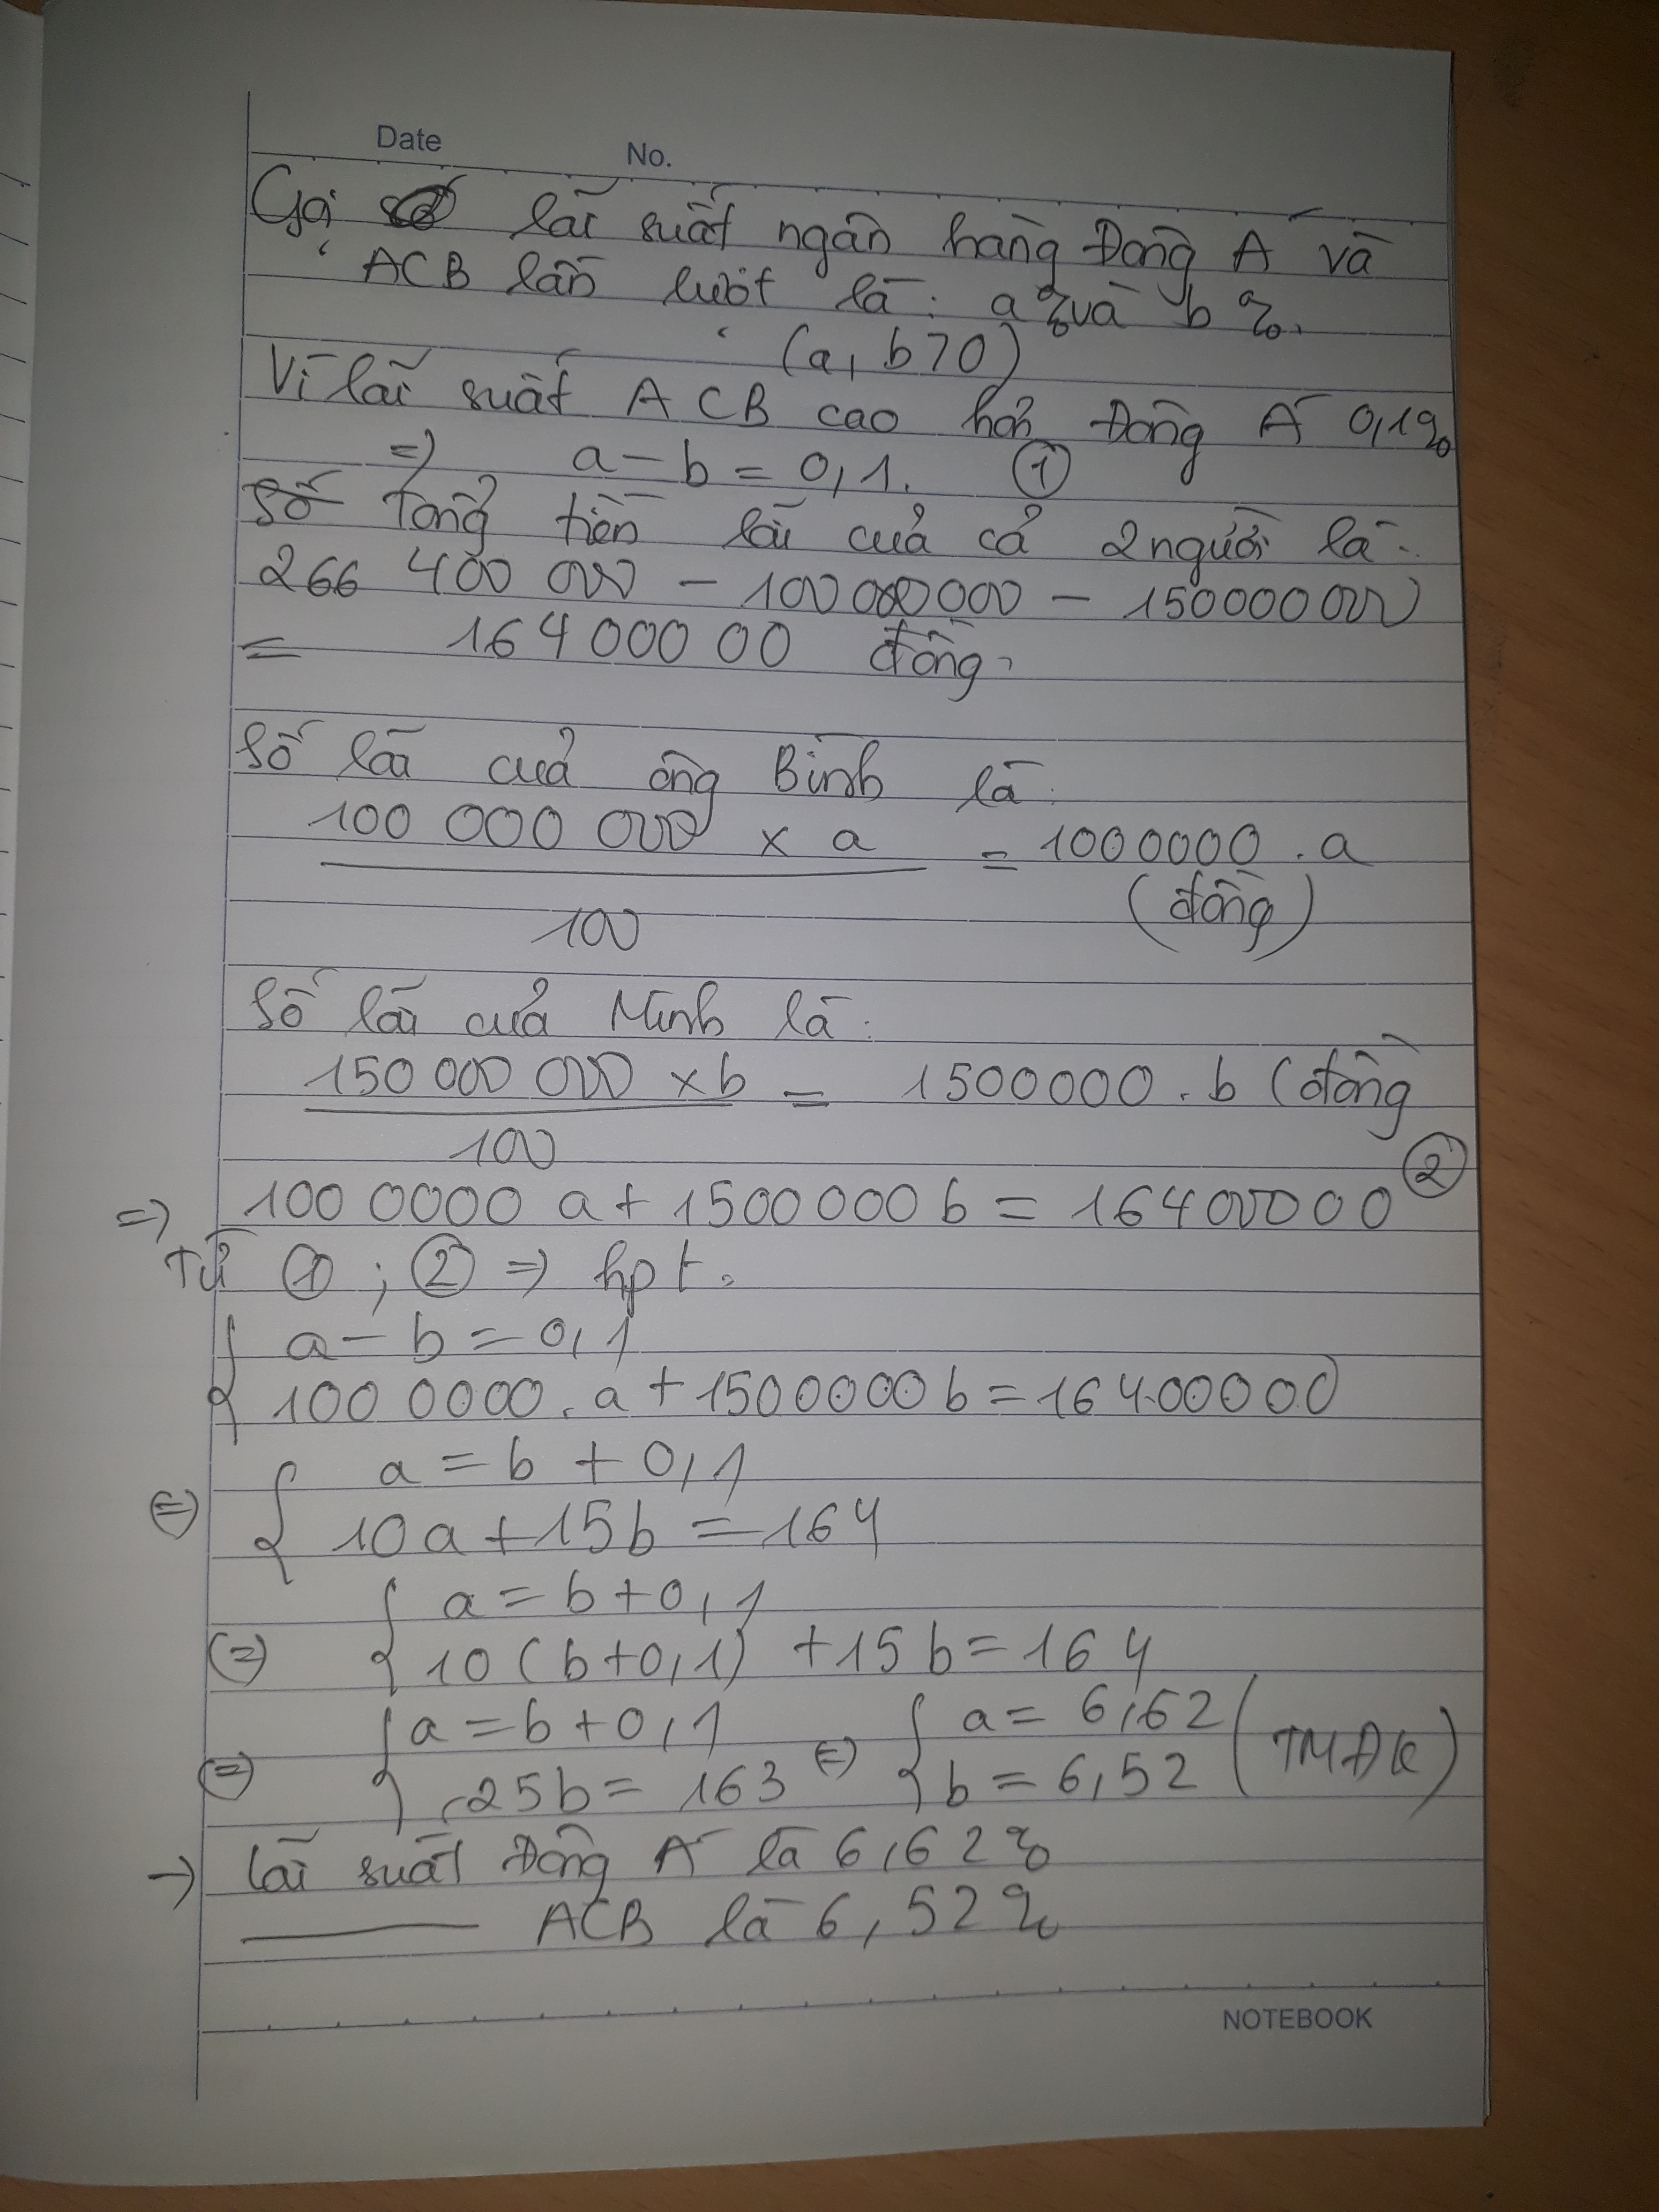 Date No.
Gọi lãi suất ngân hàng Đông Á và
ACB lần lượt là: a % và b %.
(a, b > 0)
Vì lãi suất ACB cao hơn Đông Á 0,1%
=> a - b = 0,1. ①
Số Tổng tiền lãi của cả 2 người là:
266 400 000 - 100 000 000 - 150 000 000
= 164 000 00 đồng.
Số lãi của ông Bình là:
100 000 000 x a = 1000000 . a
(đồng)
100
Số lãi của Minh là:
150 000 000 x b = 1500000 . b (đồng
100
=> 100 0000 a + 1500 000 b = 16400000 ②
Từ ① ; ② => hpt.
{ a - b = 0,1
100 0000 . a + 1500000 b = 16400000
<=> { a = b + 0,1
10a + 15b = 164
<=> { a = b + 0,1
10(b + 0,1) + 15b = 164
<=> { a = b + 0,1 <=> { a = 6,62 (TMĐK)
25b = 163 b = 6,52
-> lãi suất Đông Á là 6,62%
——— ACB là 6,52%
NOTEBOOK